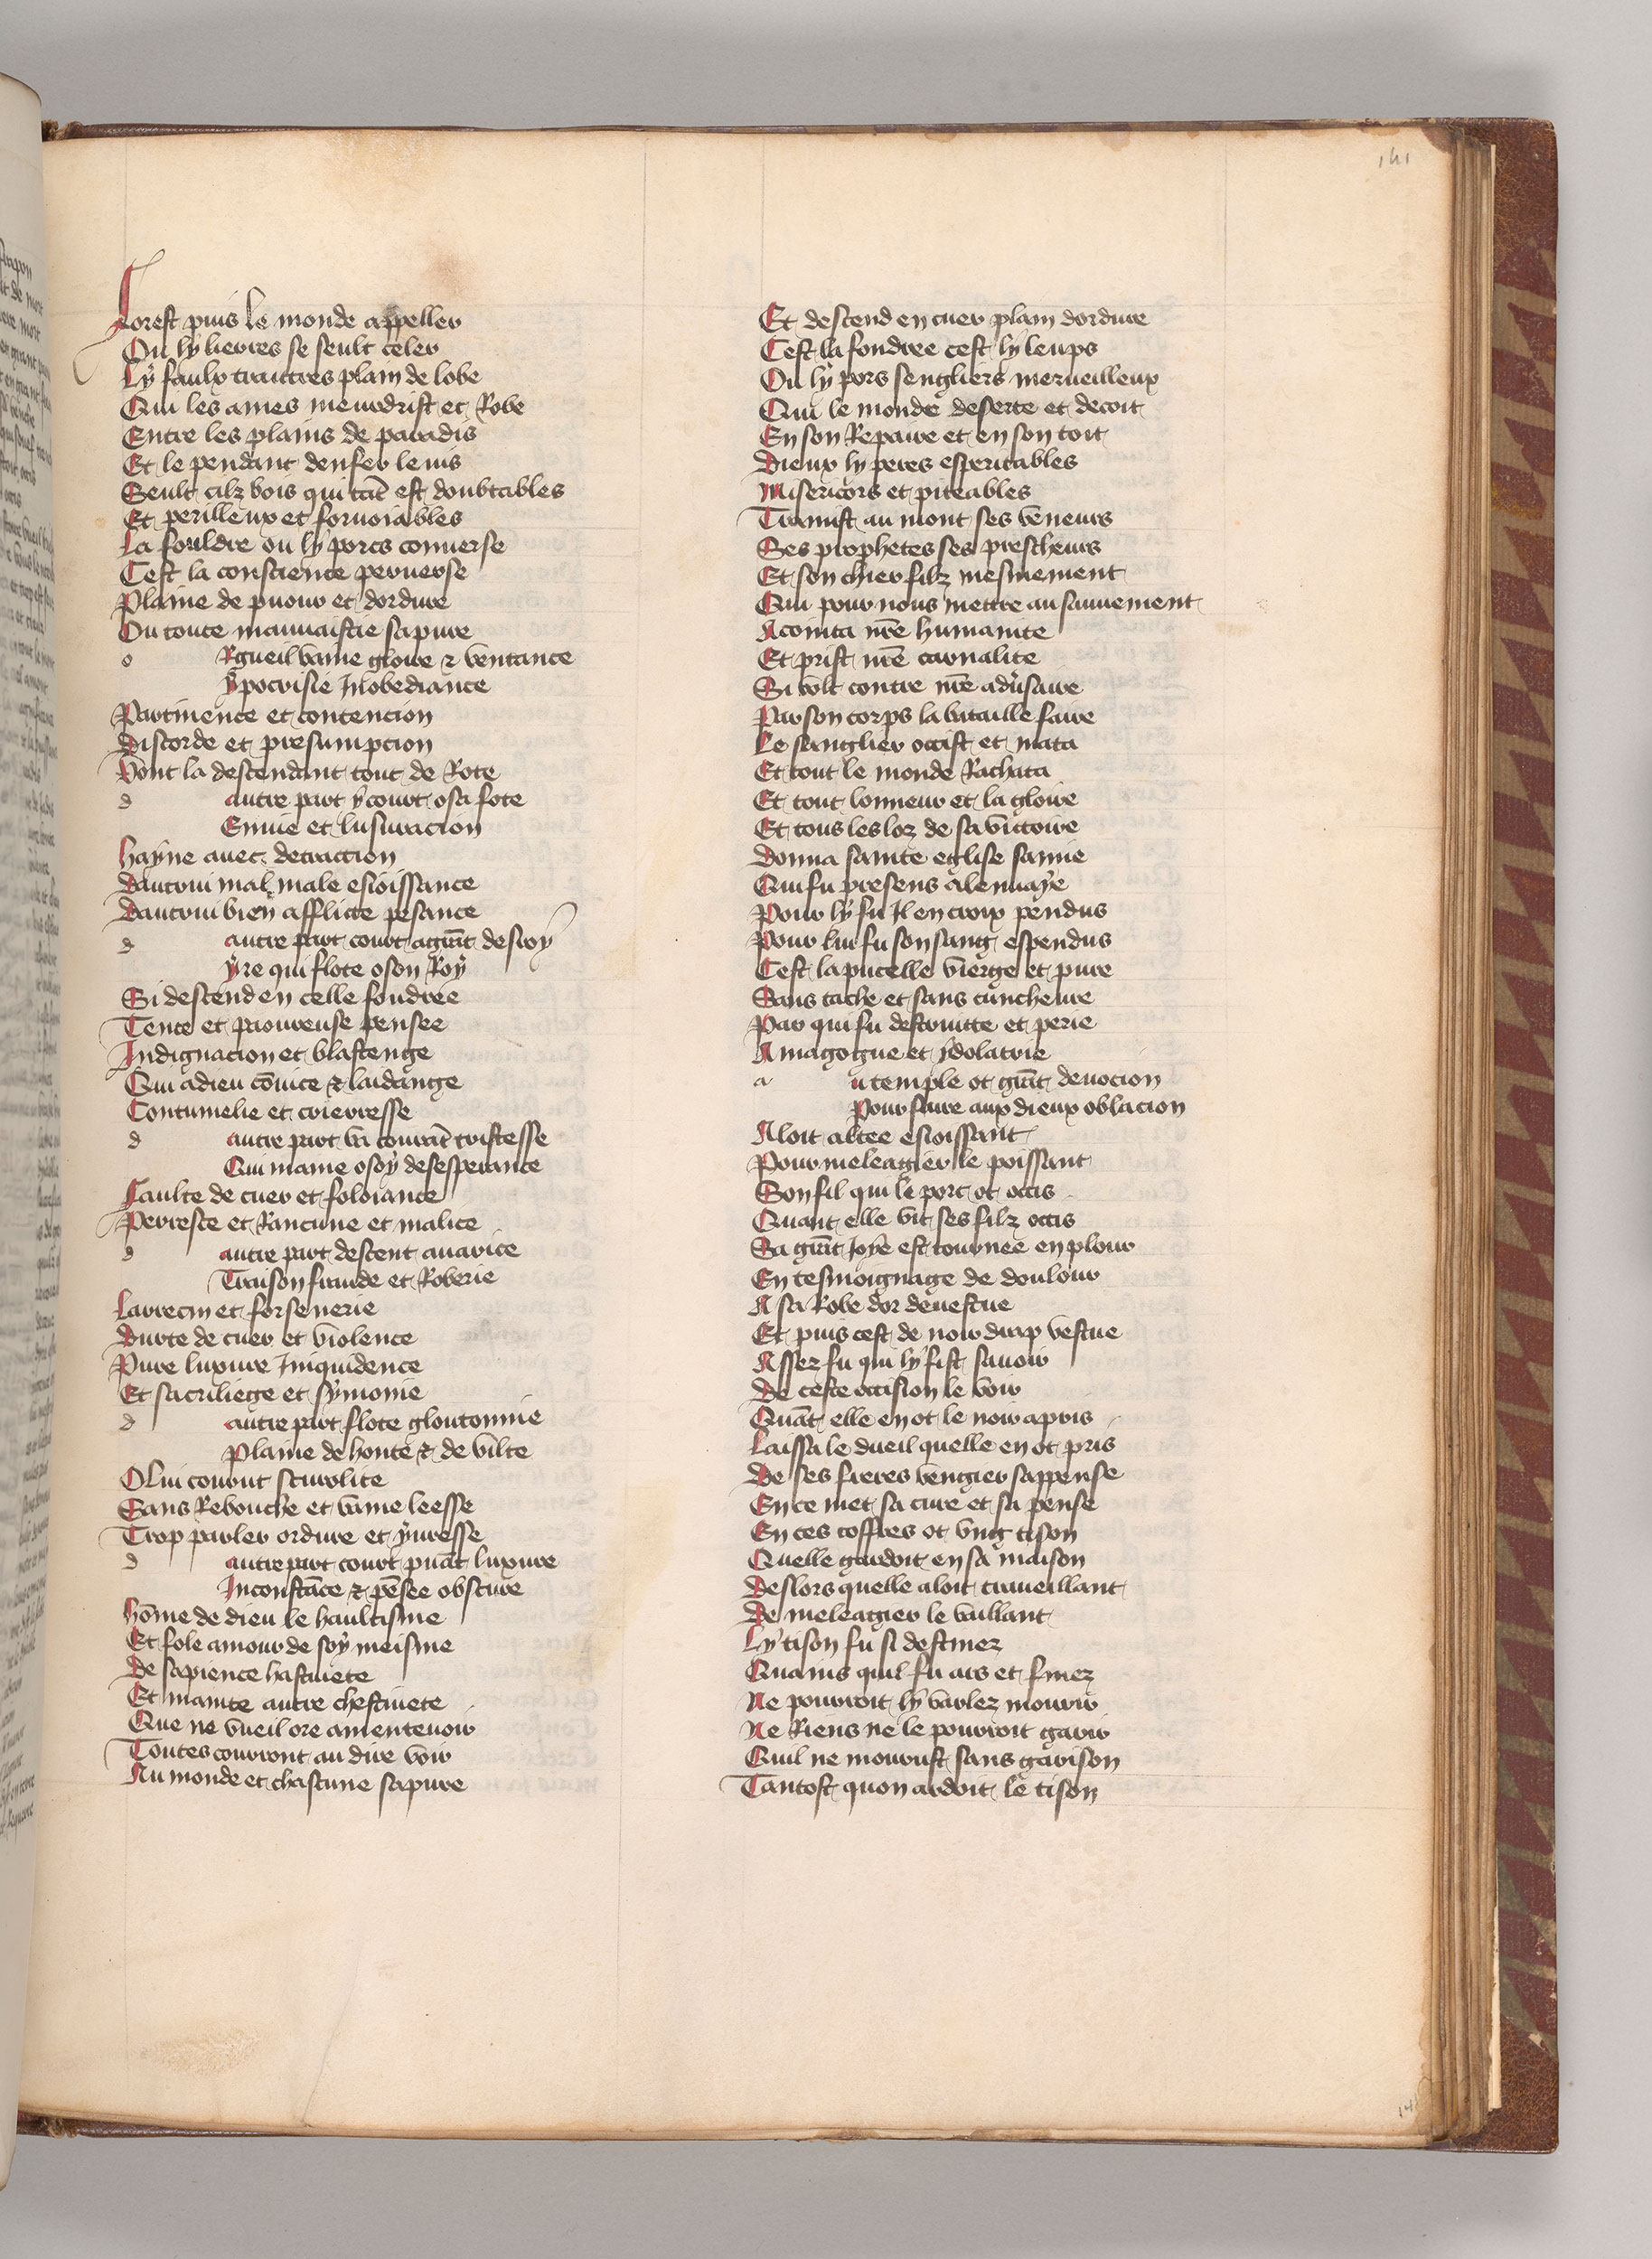 141
Forest puis le monde appeller
Ou ly lierres se seult celer
Ly faulx traittres plain de lobe
Qui les ames meurdrist et Robe
Entre les plains de paradis
Et le pendant denfer le uis
Seult cilz bois qui tāt est doubtables
Et perilleux et foruoiables
La fouldre ou ly porcs conuerse
Cest la conscience peruerse
Plaine de puour et dordure
Ou toute mauuaistie sapure
o Rgueil vaine gloire & ventance
ypocrisie Inobediance
Partinence et contencion
Discorde et presumpcion
Vont la descendant tout de Rote
d autre part y court o sa fote
Enuie et susurracion
hayne auec detraccion
Dautrui mal male esioissance
Dautrui bien afflicte pesance
d autre part court a grāt desroy
yre qui flote o son Roy
Si descend en celle fondree
Tence et paoureuse pensee
Indignacion et blastenge
Qui a dieu cōuice & laidange
Contumelie et crierresse
d autre part va courāt tristesse
Qui maine o soy desesperance
Faulte de cuer et foloiance
Perresce et Rancune et malice
d autre part descent auarice
Traison fraude et Roberie
Larrecin et forsenerie
Durte de cuer et violence
Pure luxure Inquidence
Et sacriliege et symonie
d autre part flote gloutonnie
Plaine de honte & de vilte
O lui courut scurolite
Sans Rebouche et vaine leesse
Trop parler ordure et yuresse
d autre part court puāt luxure
Inconstāce & pēsee obscure
hōme de dieu le haultisme
Et fole amour de soy meisme
De sapience hastiuete
Et mainte autre chestiuete
Que ne vueil ore amenteuoir
Toutes courront au dire voir
Au monde et chascune sapure
Et descend en cuer plain dordure
Cest la fondree cest ly leups
Ou ly pors sengliers merueilleux
Qui le monde deserte et decoit
En son Repaire et en son toit
Dieux ly peres esperitables
Misericors et piteables
Tramist au mont ses veneurs
Ses prophetes ses prescheurs
Et son chier filz mesmement
Qui pour nous mettre a sauuement
Acointa nr̄e humanite
Et prist nr̄e carnalite
Si volt contre nr̄e adu̾saire
Par son corps la bataille faire
Le sanglier occist et mata
Et tout le monde Rachata
Et tout lonneur et la gloire
Et tous les loz de sa victoire
Donna sainte eglise samie
Qui fu presens a lenuaye
Pour ly fu Il en croix pendus
Pour lui fu son sang espendus
Cest la pucelle vierge et pure
Sans tache et sans cuncheure
Par qui fu destruitte et perie
Amagogue et ydolatrie
a u temple ot grāt deuocion
Pour faire aux dieux oblacion
Aloit altee esioissant
Pour meleagier le poissant
Son fil qui le porc ot occis
Quant elle vit ses filz occis
Sa grāt Joye est tournee en plour
En tesmoignage de doulour
A sa Robe dor deuestue
Et puis cest de noir drap vestue
Assez fu qui ly fist sauoir
De ceste occision le voir
Quāt elle en ot le noir apris
Laissa le dueil quelle en ot pris
De ses freres vengier sappense
En ce met sa cure et sa pense
En ces coffres ot vng tison
Quelle gardoit en sa maison
Deslors quelle aloit traueillant
De meleagier le vaillant
Ly tison fu si destinez
Quains quil fu ars et finez
Ne pourroit ly varlez mourir
Ne Riens ne le pourroit garir
Quil ne mourust sans garison
Tantost quon ardoit le tison